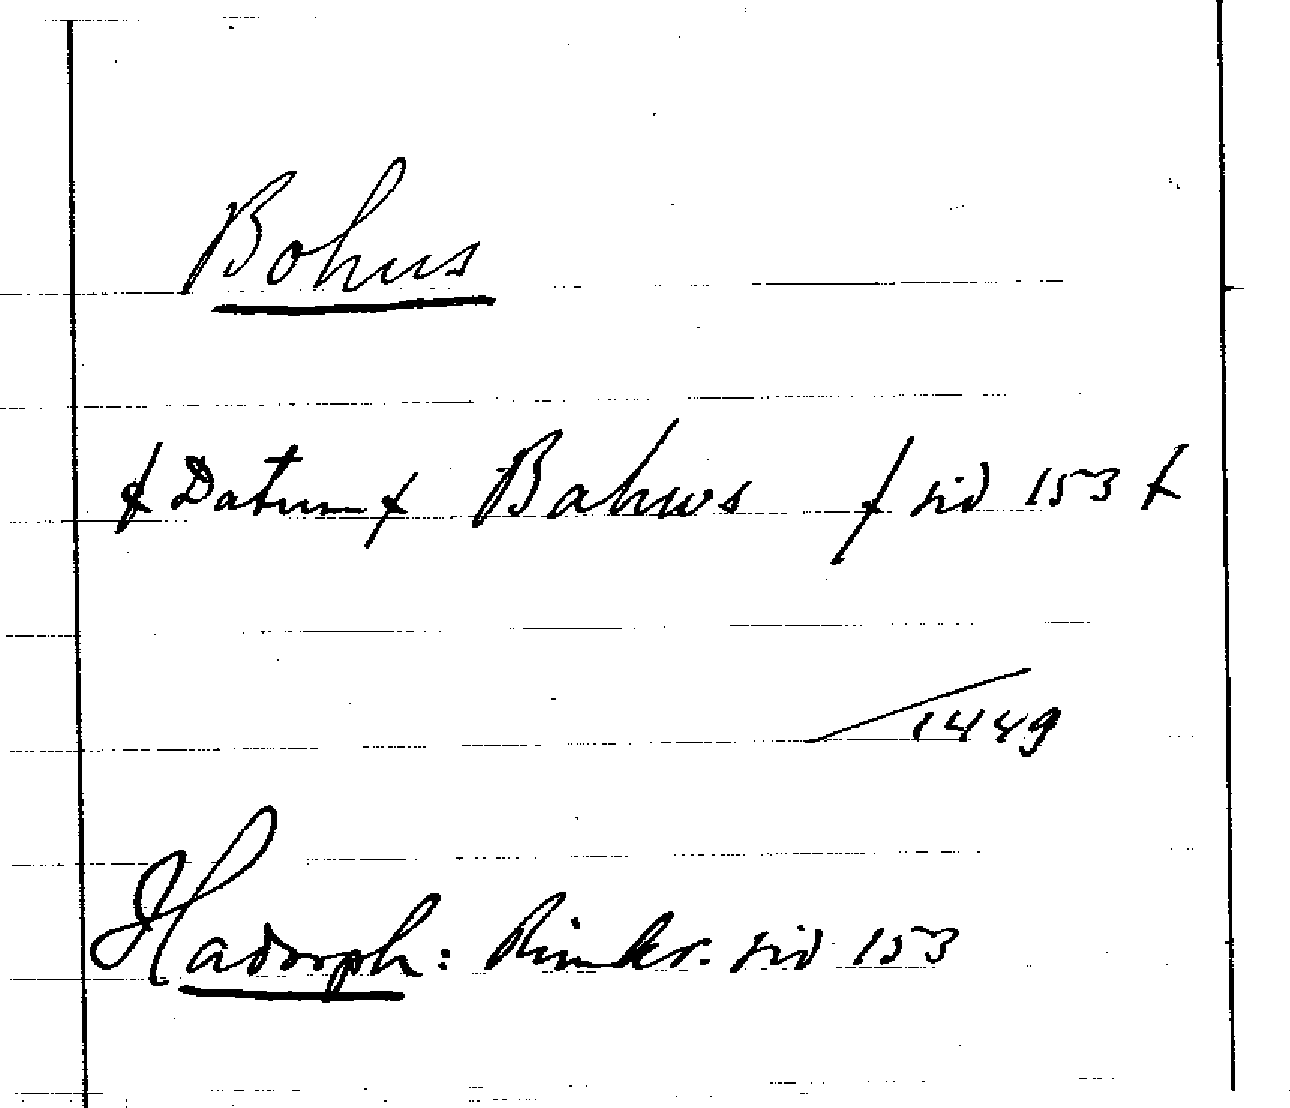 Bohus
/ Datum / Bahws / sid 153 /
1449
Hadorph: Rimkr. sid 153